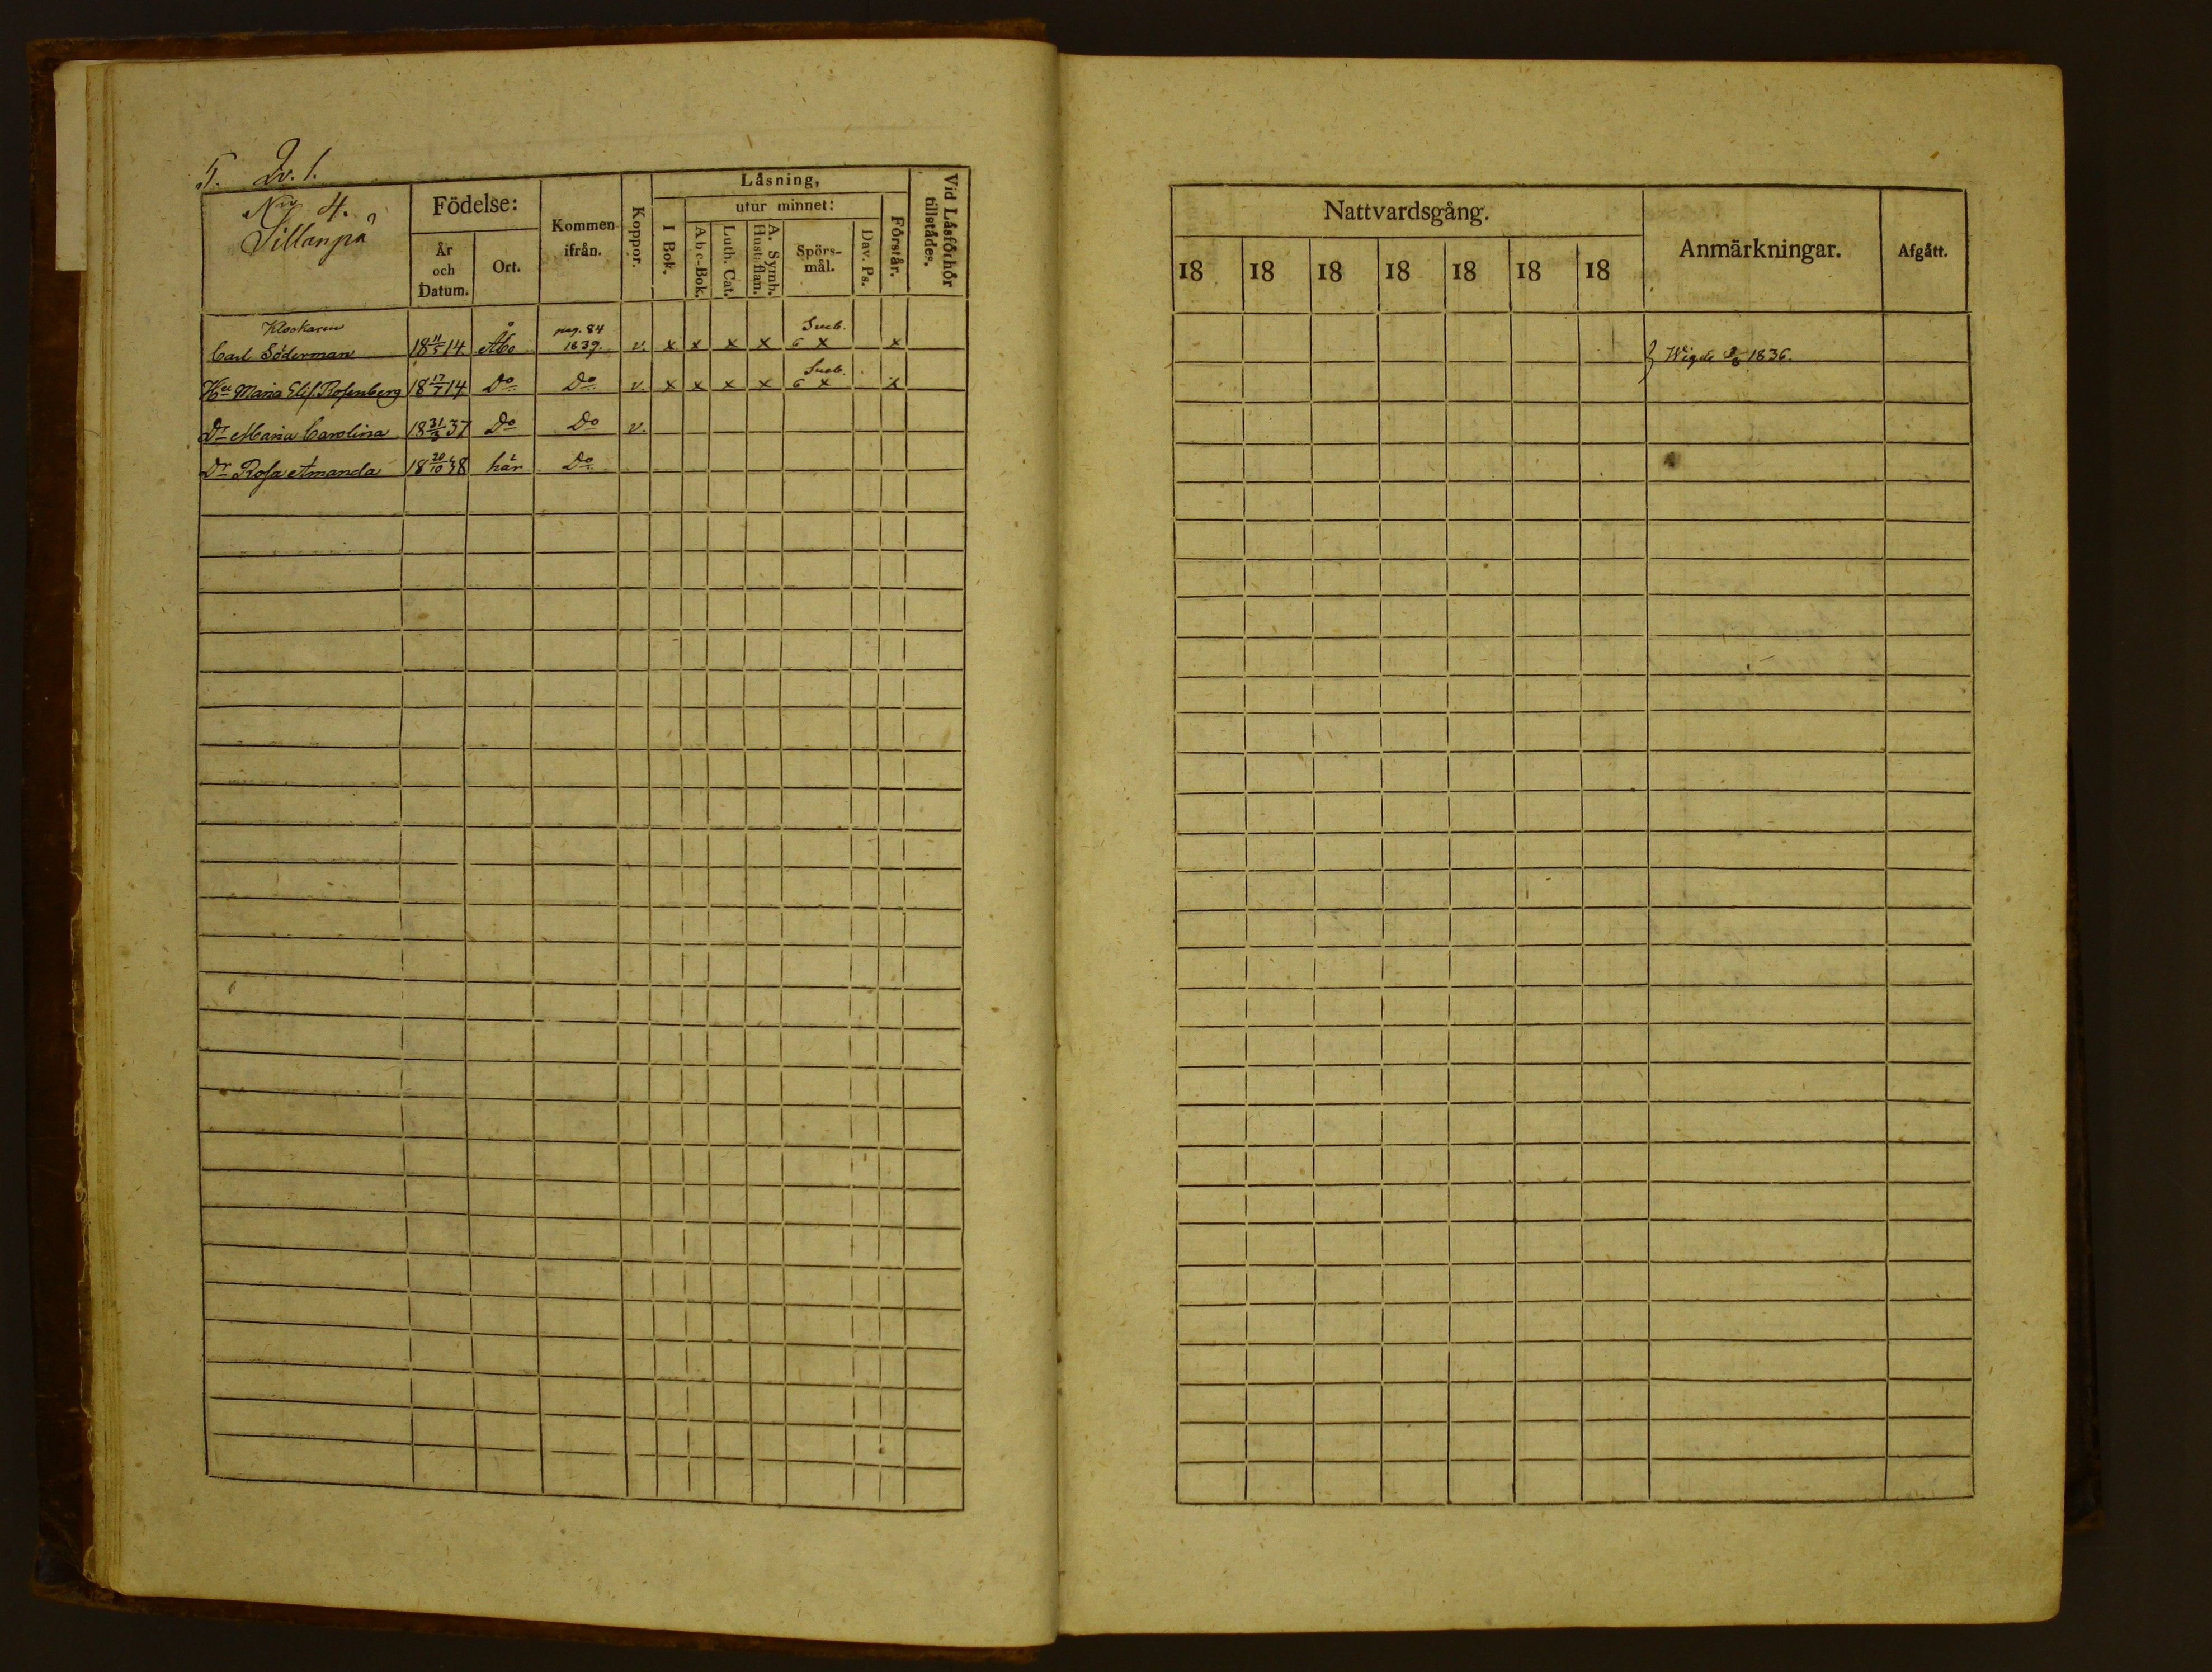 5. Qv. 1.
Nro 4.
Sillanpä
Födelse:
År och Datum.
Ort.
Kommen ifrån.
Koppor.
Läsning,
I Bok.
utur minnet:
Abc-Bok.
Luth. Cat.
A. Symb. Hust:flan.
Spörs-mål.
Dav. Ps.
Förstår.
Vid Läsförhör tillstädes.
Nattvardsgång.
18 18 18 18 18 18 18
Anmärkningar.
Afgått.
Klockaren pag. 84 Sveb.
Carl Söderman 18 11/5 14 Åbo 1839. v. x x x x 6 x x } Wigde 2/6 1836.
Sveb.
Hu Maria Elis. Rosenberg 18 17/7 14 Do Do v. x x x x 6 x x
Dr Maria Carolina 18 31/3 37 Do Do v.
Dr Rosa Amanda 18 20/10 38 här Do